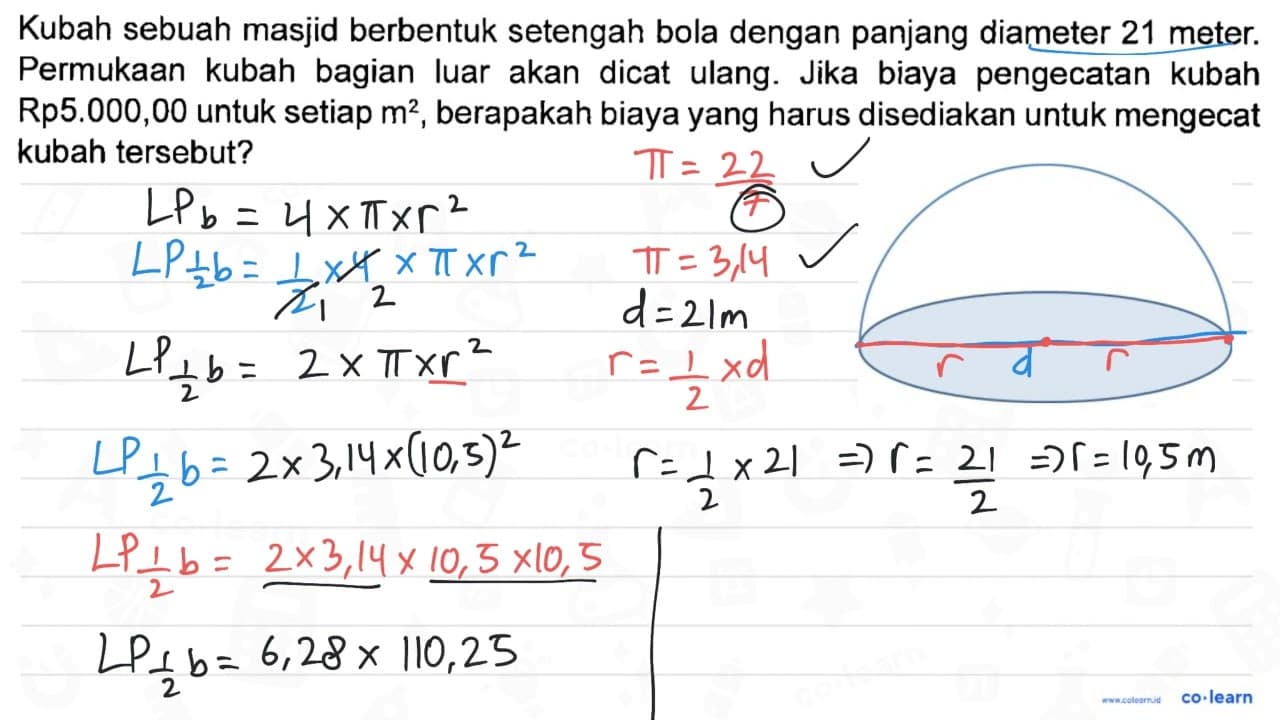 Kubah sebuah masjid berbentuk setengah bola dengan panjang diameter 21 meter.
Permukaan kubah bagian luar akan dicat ulang. Jika biaya pengecatan kubah
Rp5.000,00 untuk setiap m², berapakah biaya yang harus disediakan untuk mengecat
kubah tersebut?
π = 22/7 ✓
LP b = 4 × π × r²
LP ½ b = 1/2 × 4 × π × r²
1 2
π = 3,14 ✓
d = 21 m
LP ½ b = 2 × π × r²
r = 1/2 × d
r d r
LP ½ b = 2 × 3,14 × (10,5)²
r = 1/2 × 21 ⇒ r = 21/2 ⇒ r = 10,5 m
LP ½ b = 2 × 3,14 × 10,5 × 10,5
LP ½ b = 6,28 × 110,25
www.colearn.id co·learn